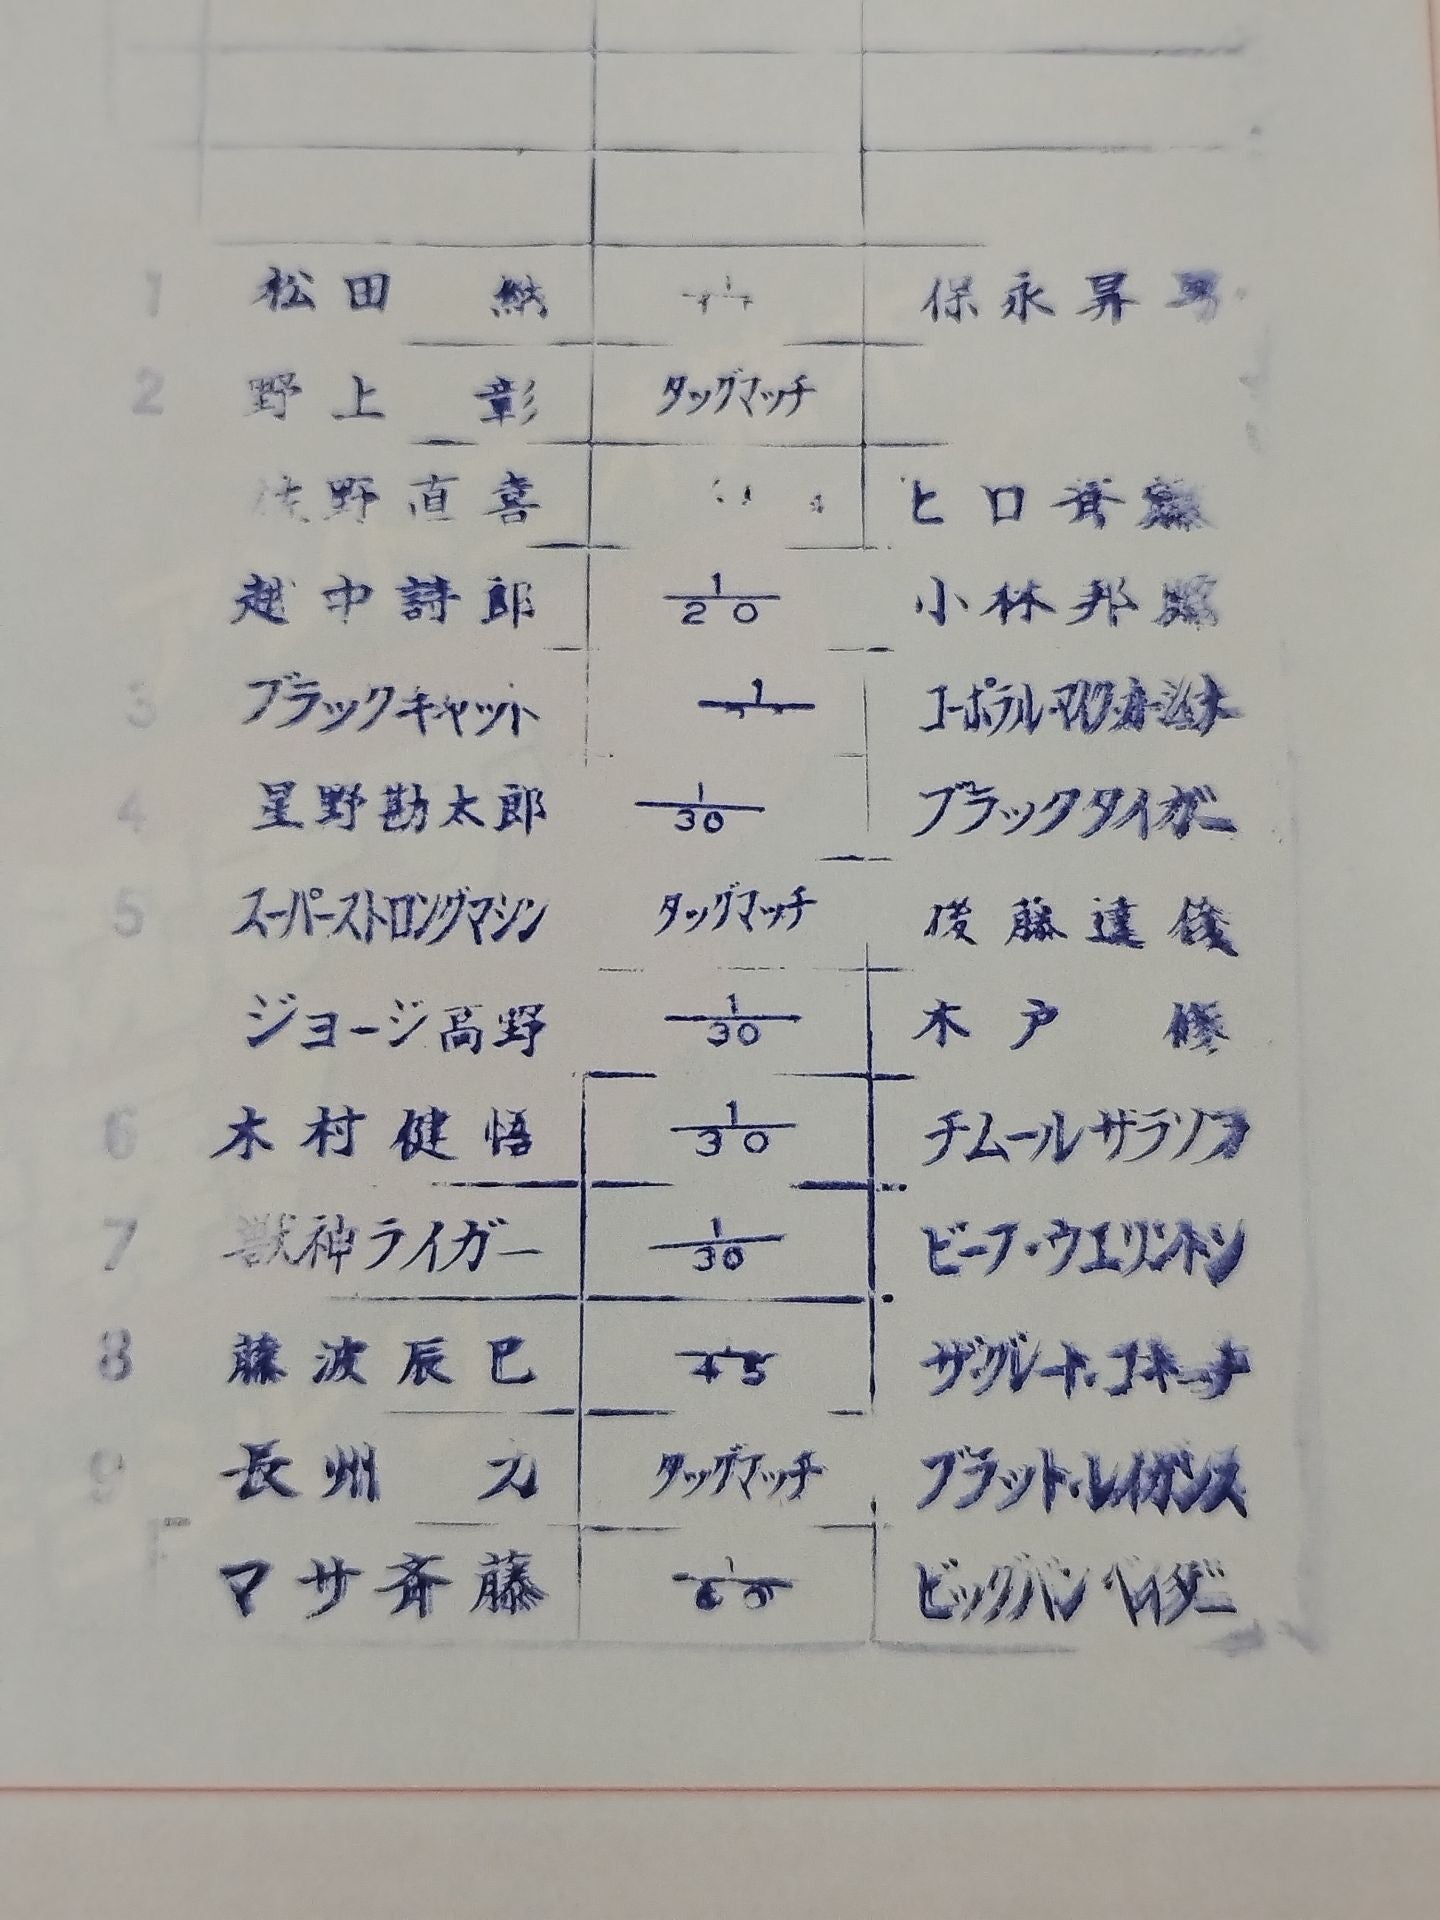 1 松田 納 1 保永昇男
2 野上 彰 タッグマッチ
野直喜 ヒロ斉藤
越中詩郎 1/20 小林邦昭
3 ブラックキャット 1 コーポラル・マイク・カーシュナー
4 星野勘太郎 1/30 ブラックタイガー
5 スーパーストロングマシン タッグマッチ 後藤達俊
ジョージ高野 1/30 木戸 修
6 木村健悟 1/30 チムールザラソフ
7 獣神ライガー 1/30 ビーフ・ウエリントン
8 藤波辰巳 1/45 ザ・グレート・コキーナ
9 長州 力 タッグマッチ ブラット・レイガンス
マサ斉藤 1/60 ビッグバンベイダー